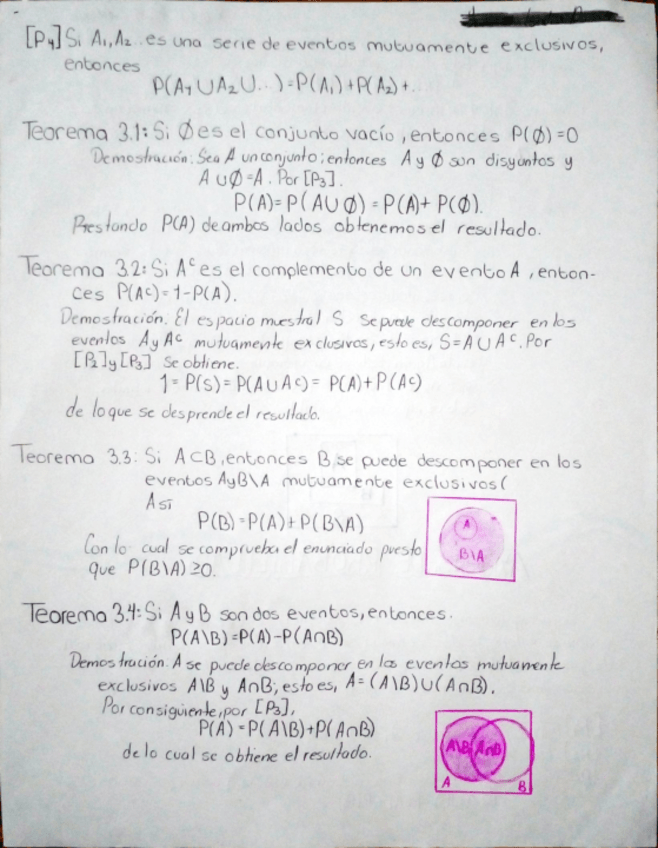 [P4] Si A₁, A₂... es una serie de eventos mutuamente exclusivos,
entonces
P(A₁ ∪ A₂ ∪ ...) = P(A₁) + P(A₂) + ...
Teorema 3.1: Si ∅ es el conjunto vacío, entonces P(∅) = 0
Demostración: Sea A un conjunto; entonces A y ∅ son disyuntos y
A ∪ ∅ = A. Por [P3].
P(A) = P(A ∪ ∅) = P(A) + P(∅).
Restando P(A) de ambos lados obtenemos el resultado.
Teorema 3.2: Si Aᶜ es el complemento de un evento A, enton-
ces P(Aᶜ) = 1 - P(A).
Demostración. El espacio muestral S se puede descomponer en los
eventos A y Aᶜ mutuamente exclusivos, esto es, S = A ∪ Aᶜ. Por
[P2] y [P3] se obtiene.
1 = P(S) = P(A ∪ Aᶜ) = P(A) + P(Aᶜ)
de lo que se desprende el resultado.
Teorema 3.3: Si A ⊂ B, entonces B se puede descomponer en los
eventos A y B\A mutuamente exclusivos (
Así
P(B) = P(A) + P(B\A)
Con lo cual se comprueba el enunciado puesto
que P(B\A) ≥ 0.
A
B\A
Teorema 3.4: Si A y B son dos eventos, entonces.
P(A\B) = P(A) - P(A∩B)
Demostración. A se puede descomponer en los eventos mutuamente
exclusivos A\B y A∩B; esto es, A = (A\B) ∪ (A∩B).
Por consiguiente, por [P3],
P(A) = P(A\B) + P(A∩B)
de lo cual se obtiene el resultado.
A\B A∩B
A B